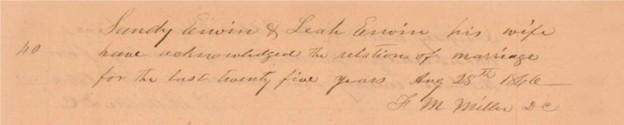 Sandy Erwin & Leah Erwin his wife
40 have acknowledged the relation of marriage
for the last twenty five years Aug 28th 1866
F M Miller D C